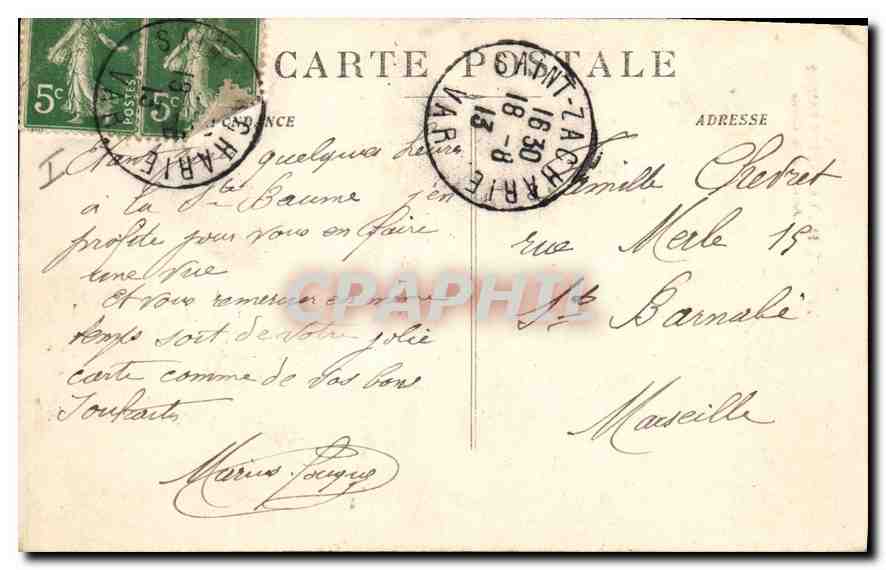 CARTE POSTALE
ADRESSE
5c
POSTES
5c
SAINT-ZACHARIE
16 30
18 - 8
13
VAR
quelques heures
à la Ste Baume j'en
profite pour vous en faire
une vue
et vous remercier en même
temps soit de votre jolie
carte comme de vos bons
souhaits
Marius
Famille Chevret
rue Merle 15
St Barnabé
Marseille
CPAPHIL